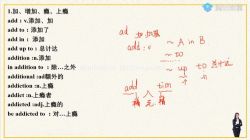 1.加、增加、瘾、上瘾
add : v.添加、加
add to : 添加了
add in : 添加
add up to : 总计达
addition :n.添加
in addition to : 除…之外
additional :adj额外的
addiction :n.上瘾
addict :n.上瘾者
addicted :adj.上瘾的
be addicted to : 对…上瘾
ad 加加瘾
add : v. ~ A in B
~ to
~ up to 共计达
add tion